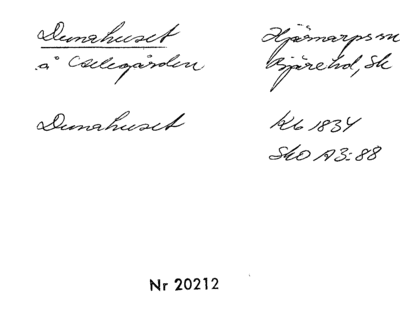 Dunahuset
å Collegården
Hjärnarps sn
Bjäre hd, Sk
Dunahuset
Kb 1834
SkO A3:88
Nr 20212